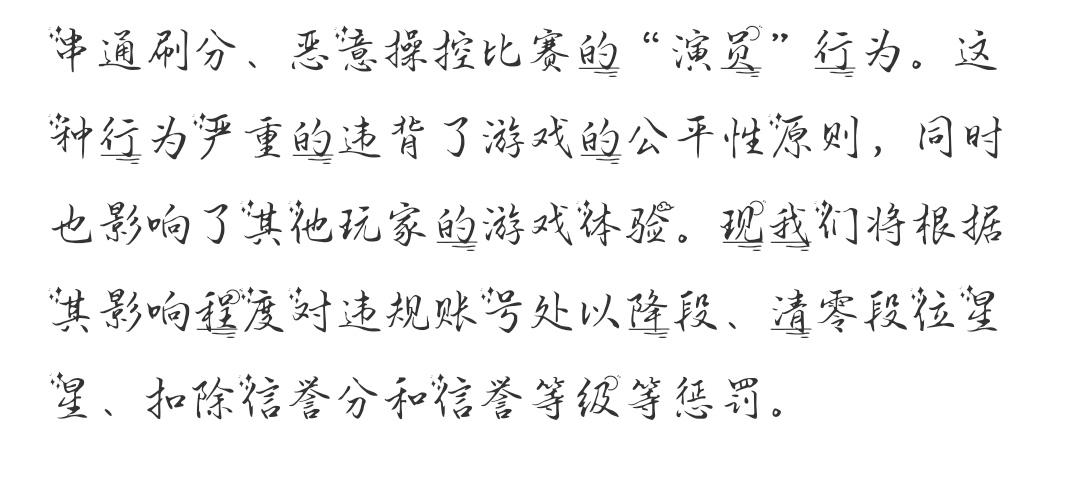 串通刷分、恶意操控比赛的“演员”行为。这
种行为严重的违背了游戏的公平性原则，同时
也影响了其他玩家的游戏体验。现我们将根据
其影响程度对违规账号处以降段、清零段位星
星、扣除信誉分和信誉等级等惩罚。